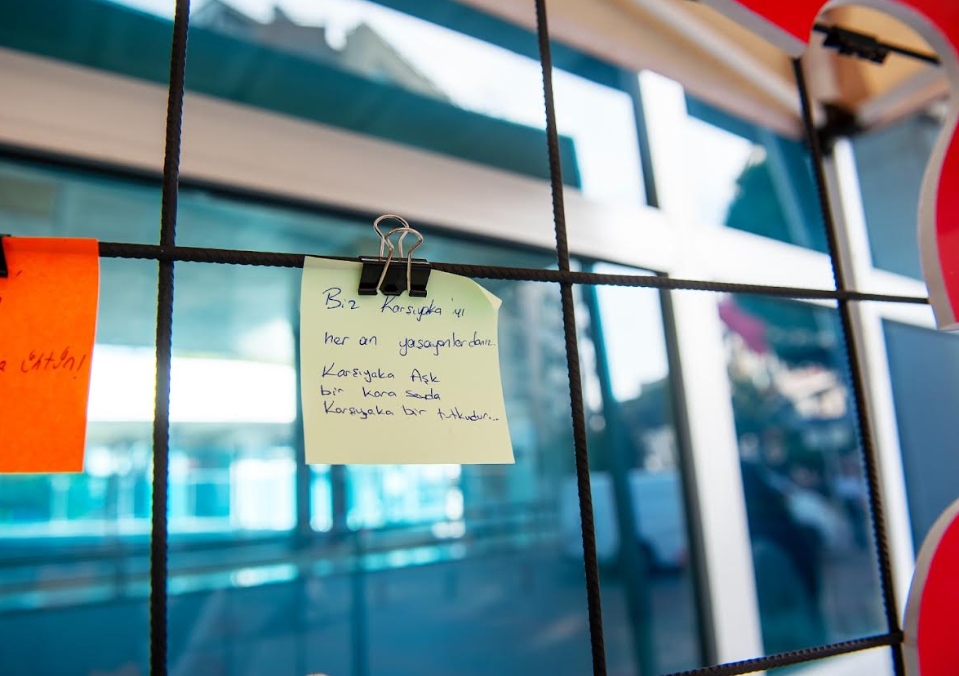 Biz Karşıyaka'yı
her an yaşayanlardanız.
Karşıyaka Aşk
bir kara sevda
Karşıyaka bir tutkudur...